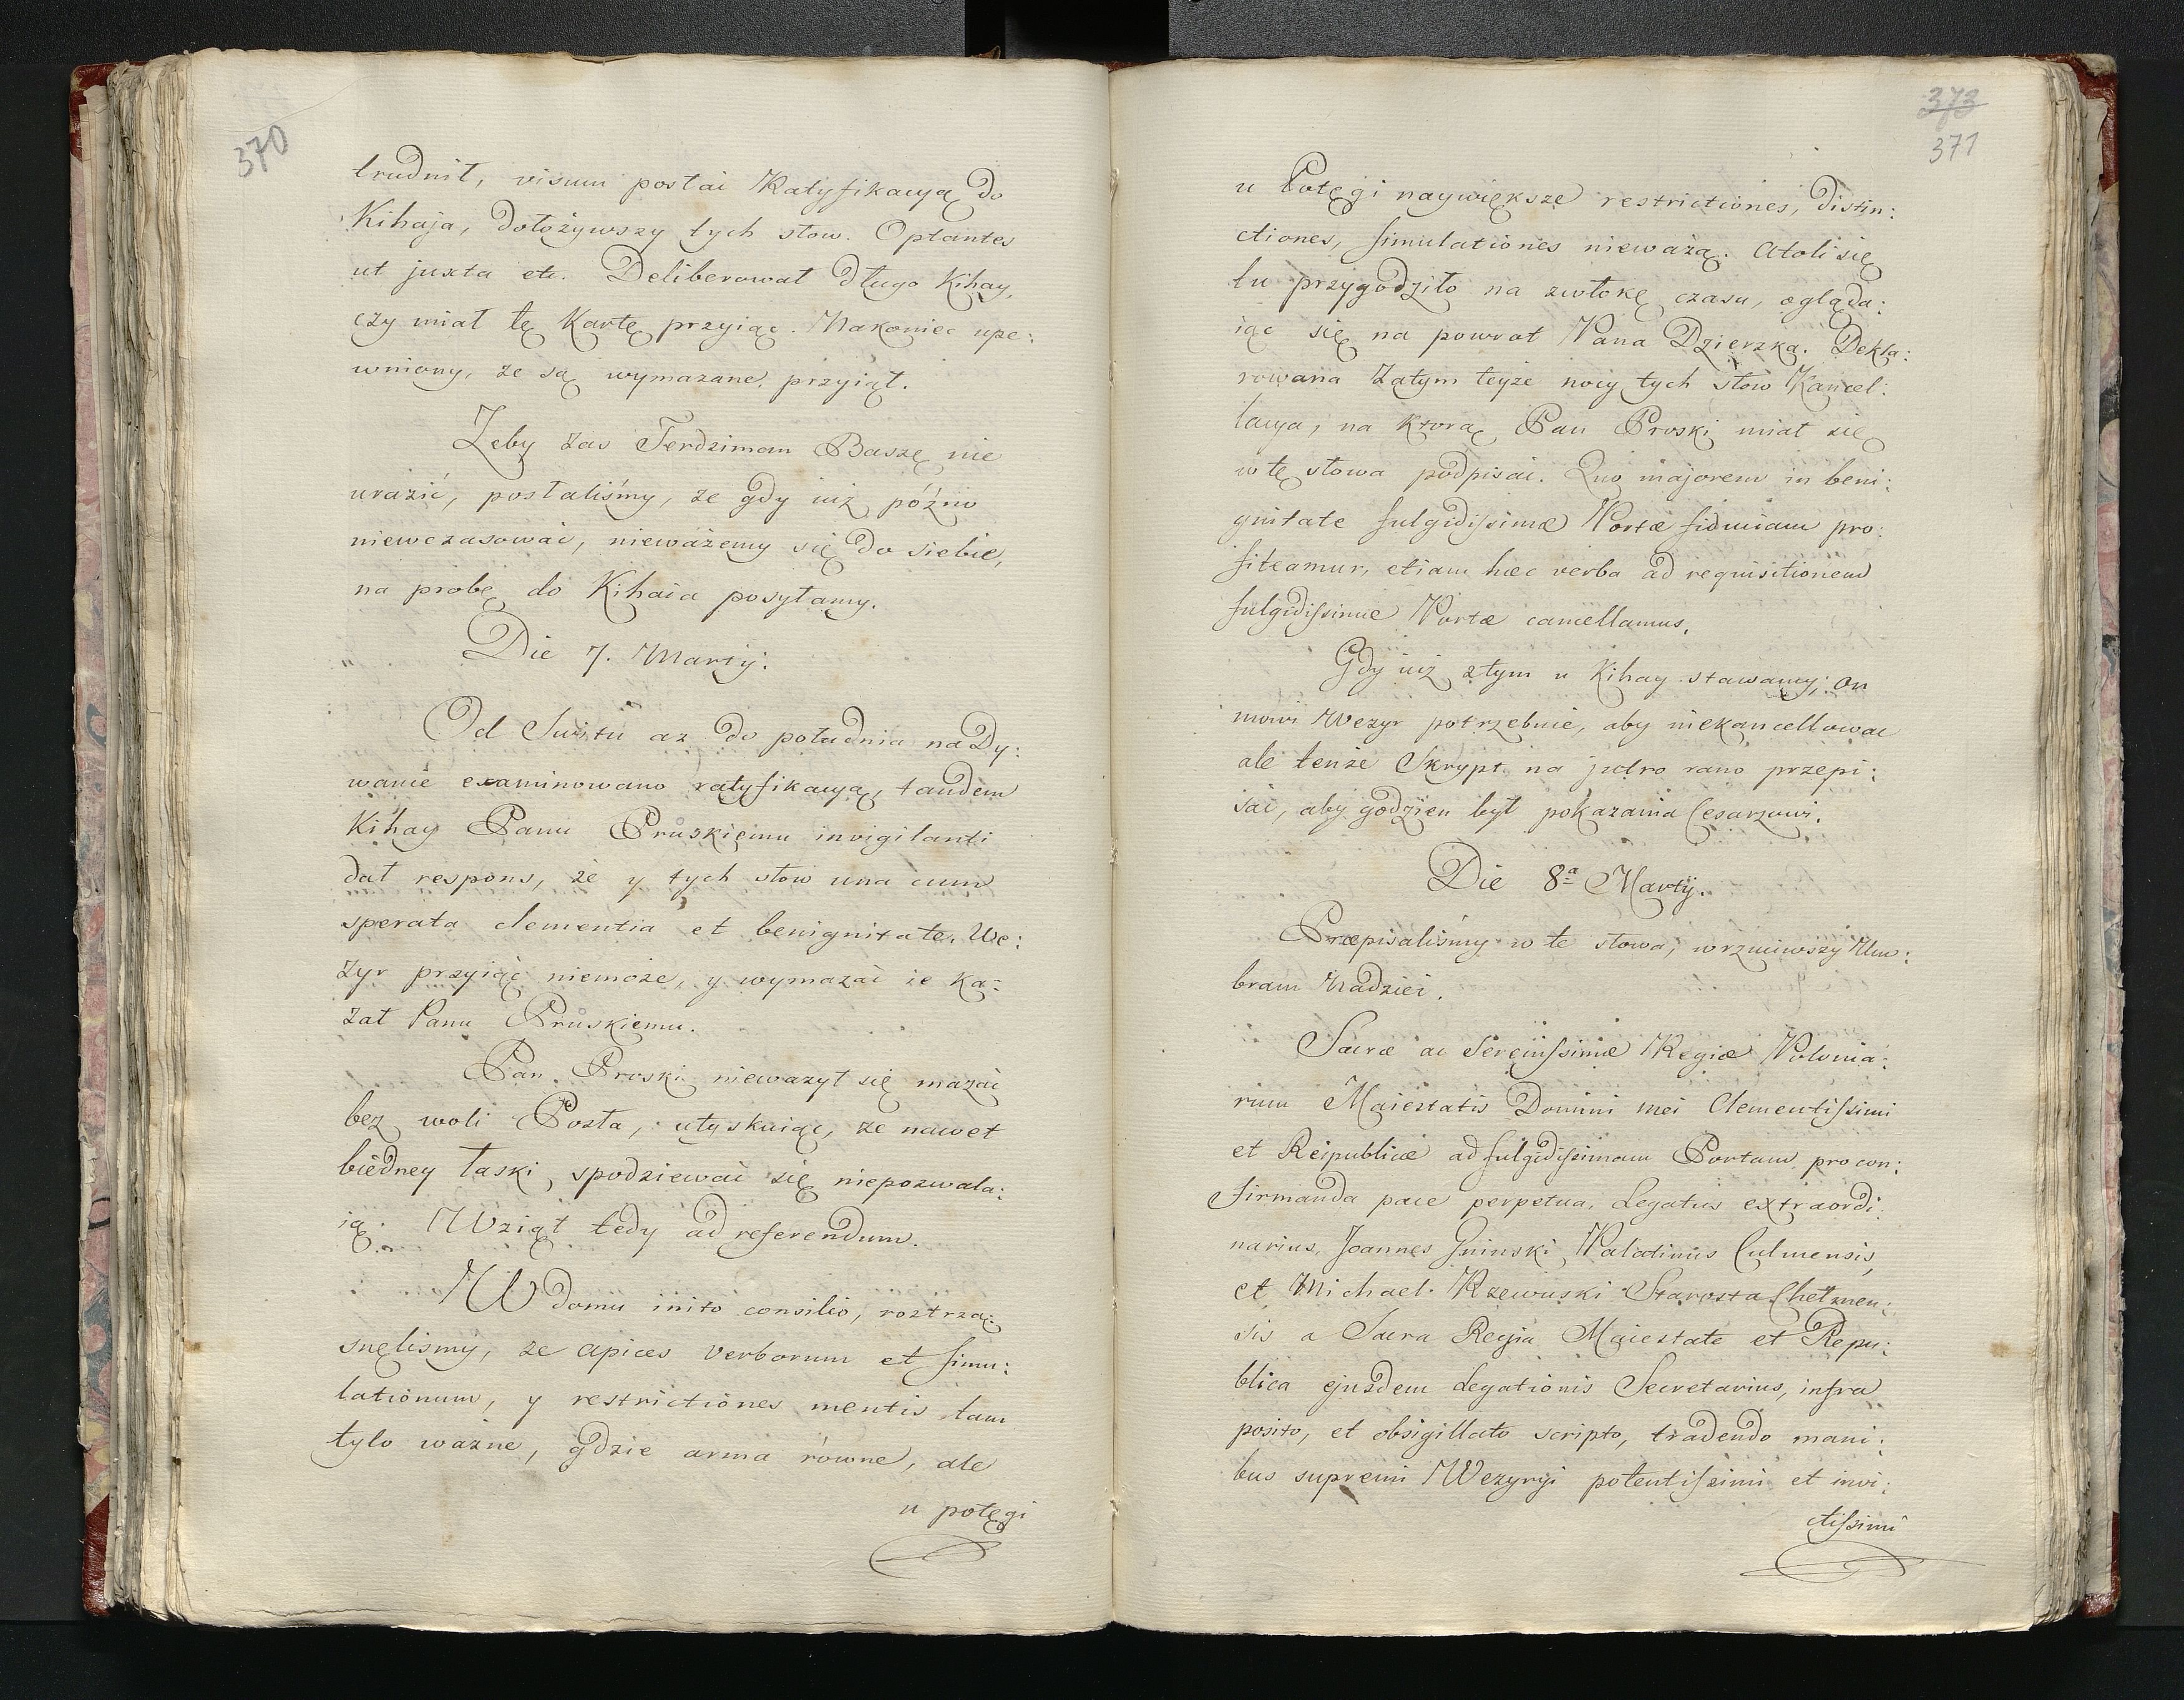 370
trudnił, visum posłać Ratyfikacyą do
Kihaja, dołożywszy tych słow. Optantes
ut juxta etc. Deliberował długo Kihay,
czy miał tę Kartę przyiąc. Nakoniec upe:
wniony, ze są wymazane, przyiął.
Zeby zas Terdziman Baszę nie
urazić, posłaliśmy, ze gdy iuż późno
niewczasować, nieważemy się do siebie,
na probę do Kihaia posyłamy.
Die 7. Martij.
Od Switu az do południa na Dy:
wanie examinowano ratyfikacyą, tandem
Kihay Panu Pruskiemu invigilanti
dał respons, że y tych słow una cum
sperata clementia et benignitate, We:
zyr przyiąć niemoże, y wymazać ie ka:
zał Panu Pruskiemu.
Pan Proski nieważył się mazać
bez woli Posła, utyskuiąc, że nawet
biedney łaski, spodziewać się niepozwala:
ią. Wziął tedy ad referendum.
W domu inito consilio, roztrza:
snęlismy, ze apices verborum et simu:
lationum, y restrictiones mentis tam
tylo ważne, gdzie arma rowne, ale
u potęgi
373
371
u Potęgi naywiększe restrictiones, distin:
ctiones, simulationes nieważą. Atoli się
tu przygodziło na zwłokę czasu, ogląda:
iąc się na powrot Pana Dzierzka. Dekla:
rowana Zatym teyże nocy tych słow Kancel:
lacya, na ktorą Pan Proski miał się
w te słowa podpisać. Quo majorem in beni:
gnitate fulgidissimæ Portæ fiduciam pro:
fiteamur, etiam hæc verba ad requisitionem
fulgidissimæ Portæ cancellamus.
Gdy iuż z tym u Kihay stawamy, on
mowi Wezyr potrzebuie, aby niekancellować
ale tenże Skrypt na jutro rano przepi:
sać, aby godzien był pokazania Cesarzowi.
Die 8ª Martij.
Przepisaliśmy w te słowa, wrzuciwszy Um:
bram Nadziei.
Sacræ ac Serenissimæ Regiæ Polonia:
rum Maiestatis Domini mei Clementissimi
et Reipublicæ ad fulgidissimam Portam pro con:
firmanda pace perpetua, Legatus extraordi:
narius, Joannes Gninski Palatinus Culmensis,
et Michael Rzewuski Starosta Chełmen:
sis a Sacra Regia Maiestate et Repu:
blica ejusdem Legationis Secretarius, infra
posito, et obsigillato scripto, tradendo mani:
bus supremi Wezyryi potentissimi et invi:
ctissimi